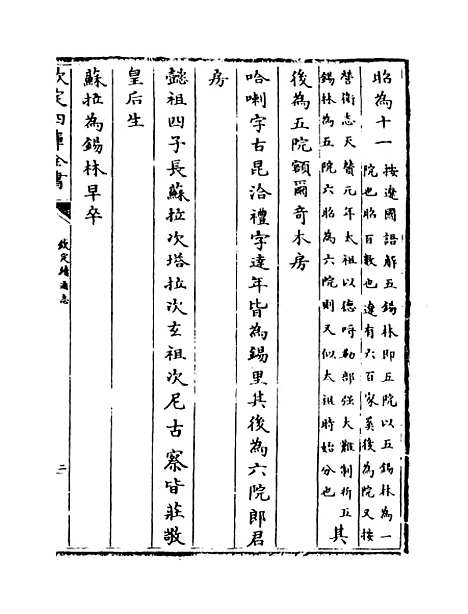 昭為十一
按遼國語解五錫林即五院以五錫林為一
院也昭百數也遼有六百家奚後為院又按
營衛志天贊元年太祖以德哷勒部强大難制析五
錫林為五院六昭為六院則又似太祖時始分也
其
後為五院額爾竒木房
哈喇字古昆洽禮字達年皆為錫里其後為六院郎君
房
懿祖四子長蘇拉次塔拉次玄祖次尼古察皆莊敬
皇后生
蘇拉為錫林早卒
欽定四庫全書
欽定續通志
二